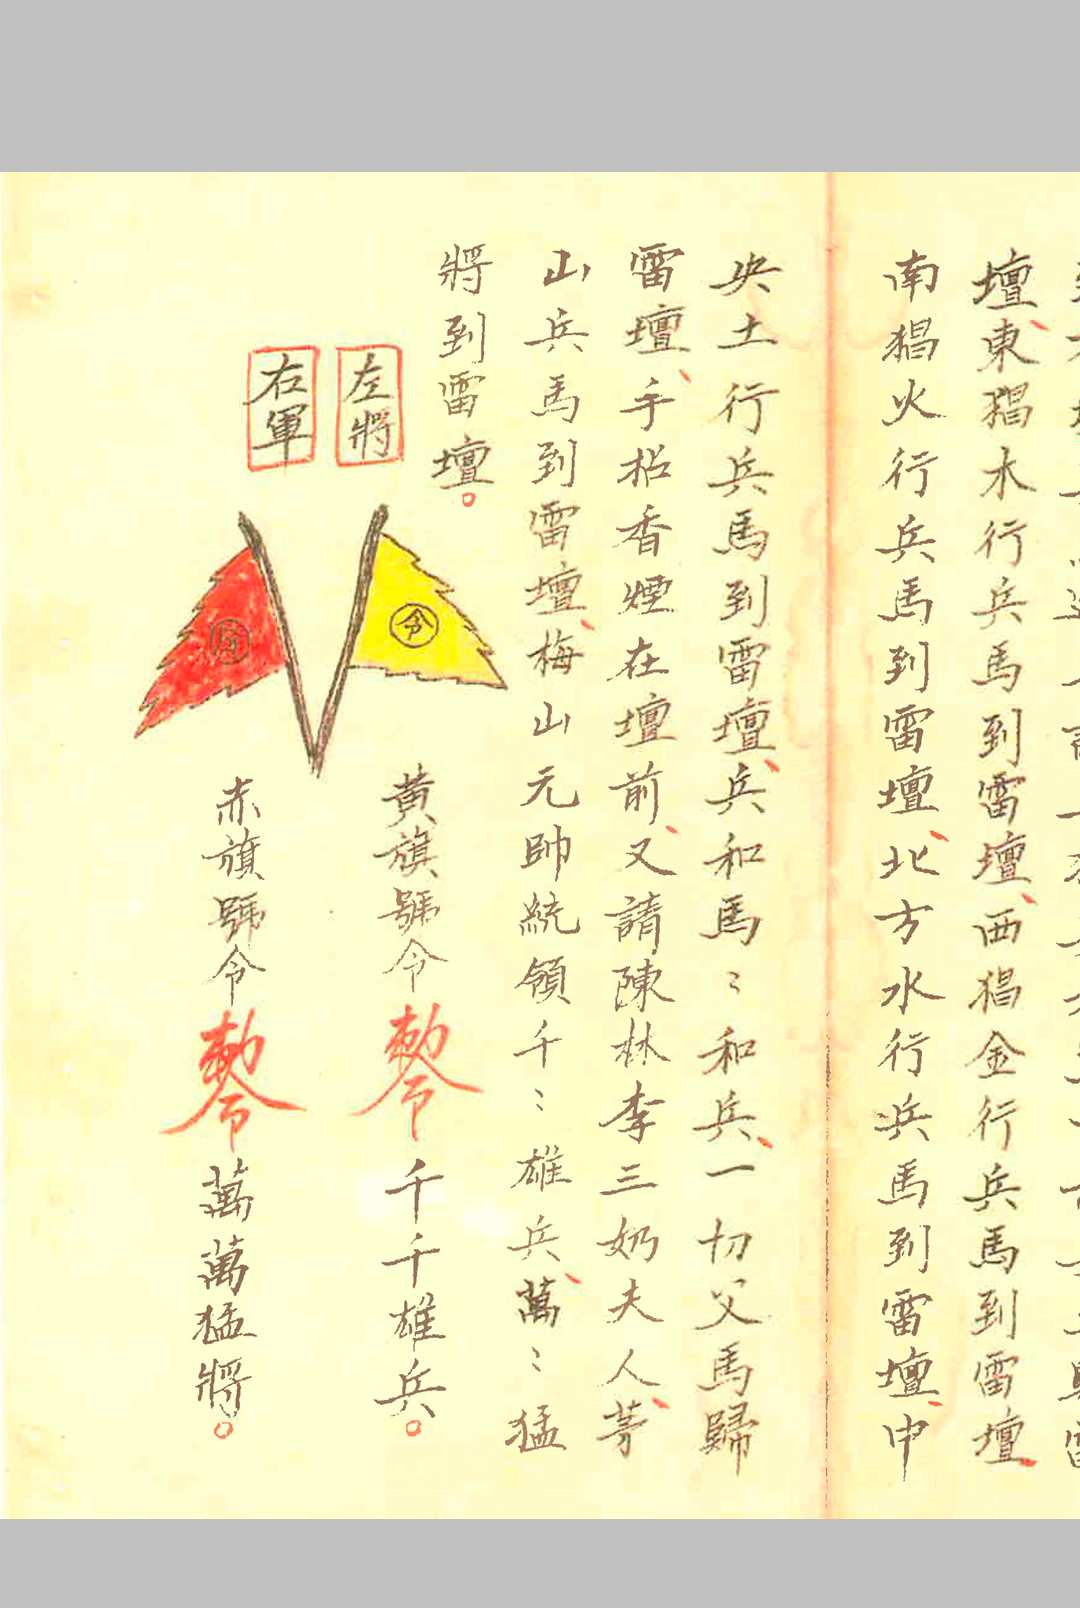 壇、東猖木行兵馬到雷壇、西猖金行兵馬到雷壇、
南猖火行兵馬到雷壇、北方水行兵馬到雷壇、中
央土行兵馬到雷壇、兵和馬:馬和兵、一切父馬歸
雷壇、手招香煙在壇前、又請陳林李三奶夫人、茅
山兵馬到雷壇、梅山元帥統領千:雄兵、萬:猛
將到雷壇。
左將
右軍
令
黃旗號令
千千雄兵。
赤旗號令
萬萬猛將。